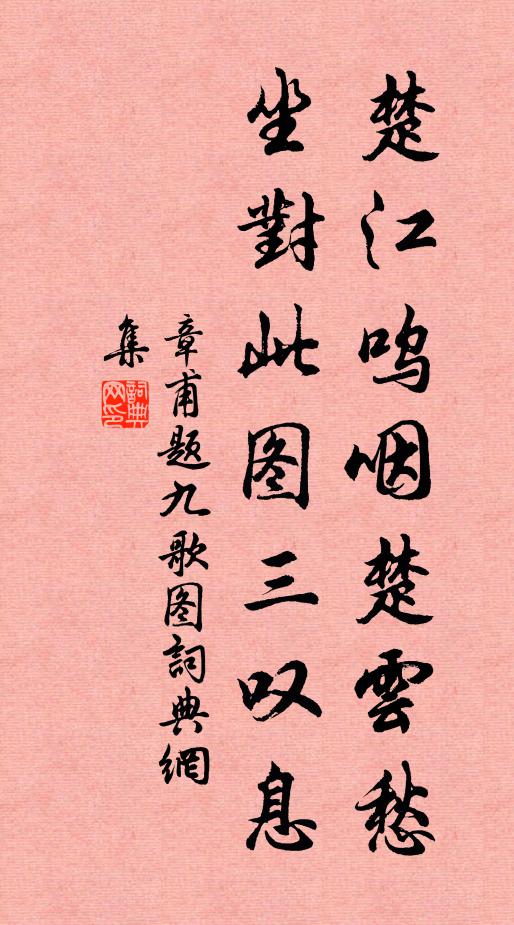 楚江呜咽楚雲愁
坐對此图三叹息
章甫題九歌图詞典網
集
詞典网印